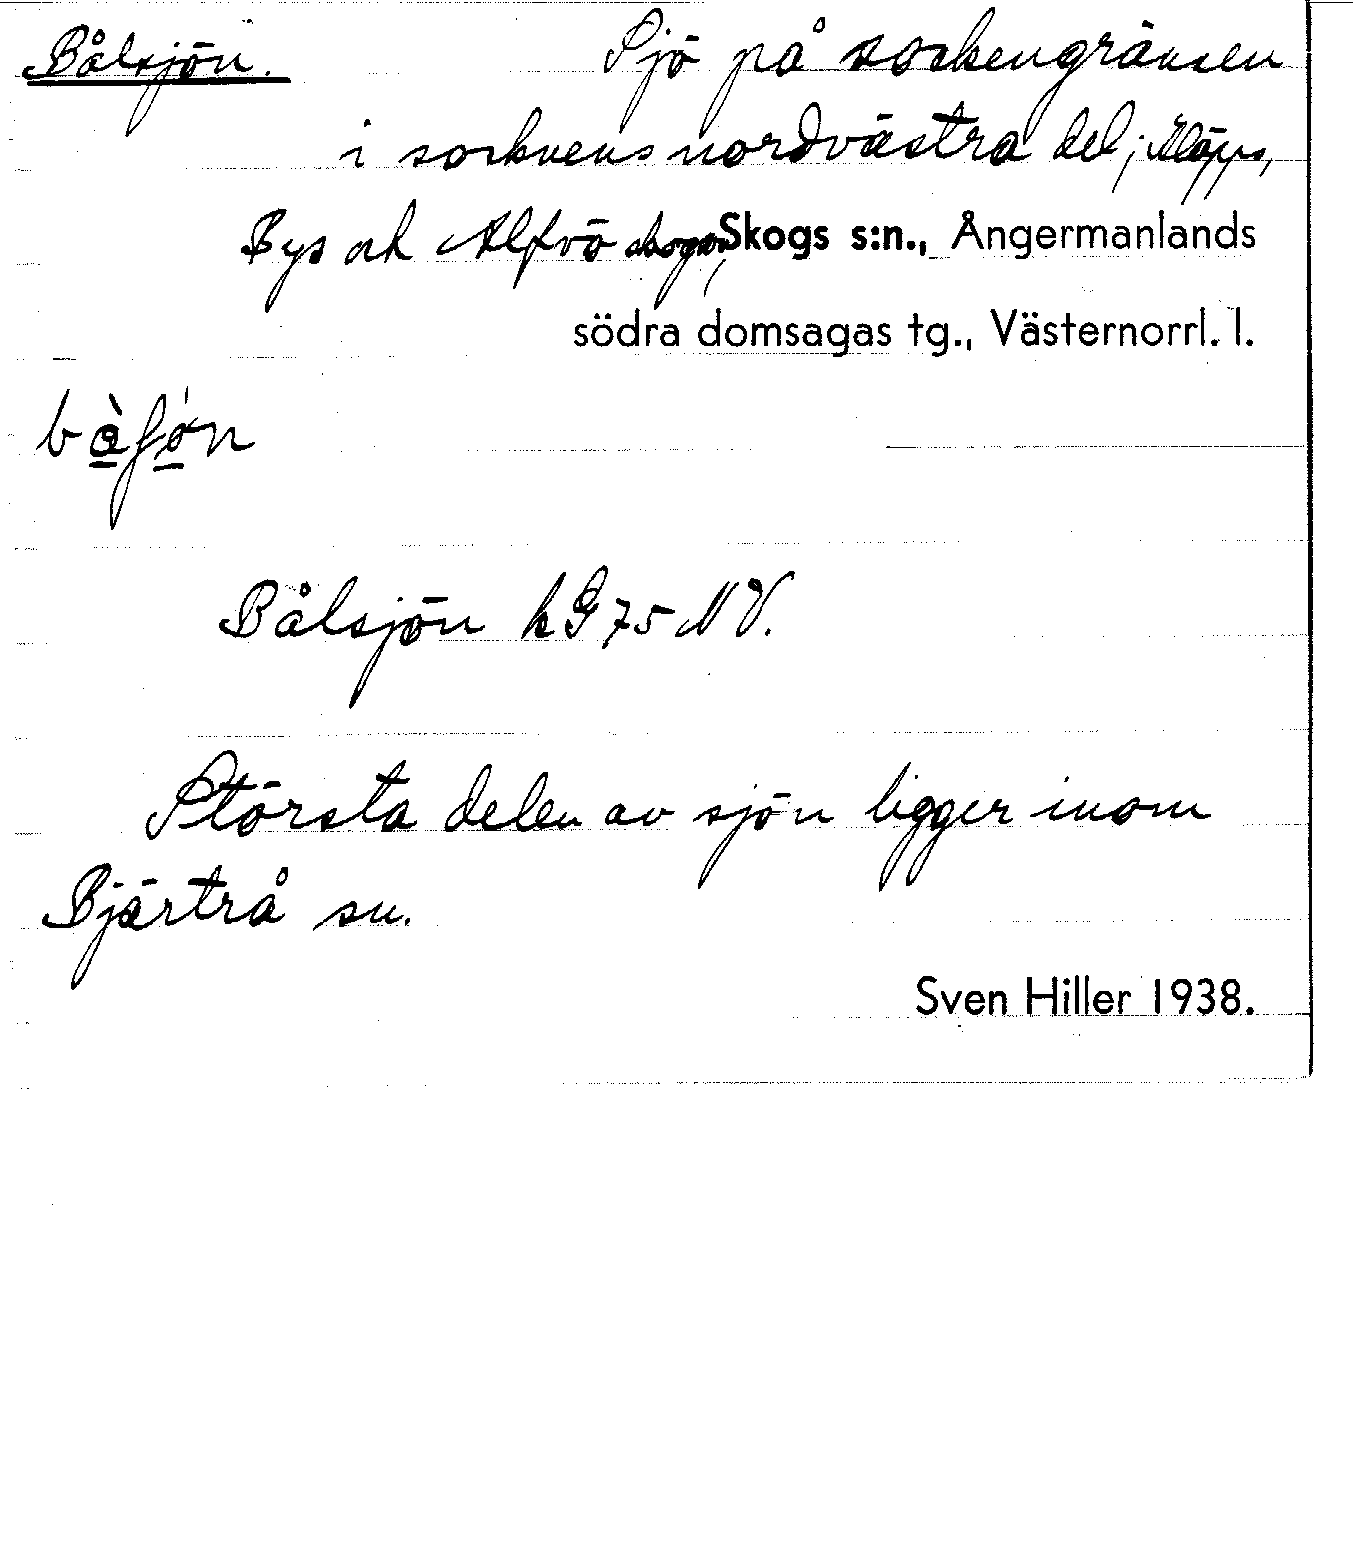 Bålsjön. Sjö på sockengränsen
i socknens nordvästra del;
Bys och Alfrö skogar, Skogs s:n., Ångermanlands
södra domsagas tg., Västernorrl. l.
Bålsjön k G 75 NV.
Största delen av sjön ligger inom
Bjärtrå sn.
Sven Hiller 1938.